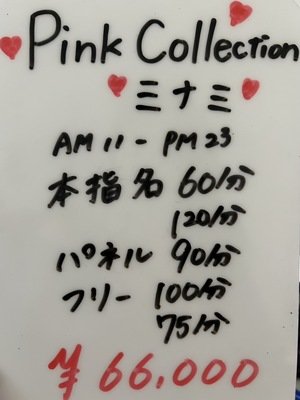 Pink Collection
ミナミ
AM 11 - PM 23
本指名 60分
120分
パネル 90分
フリー 100分
75分
¥ 66,000